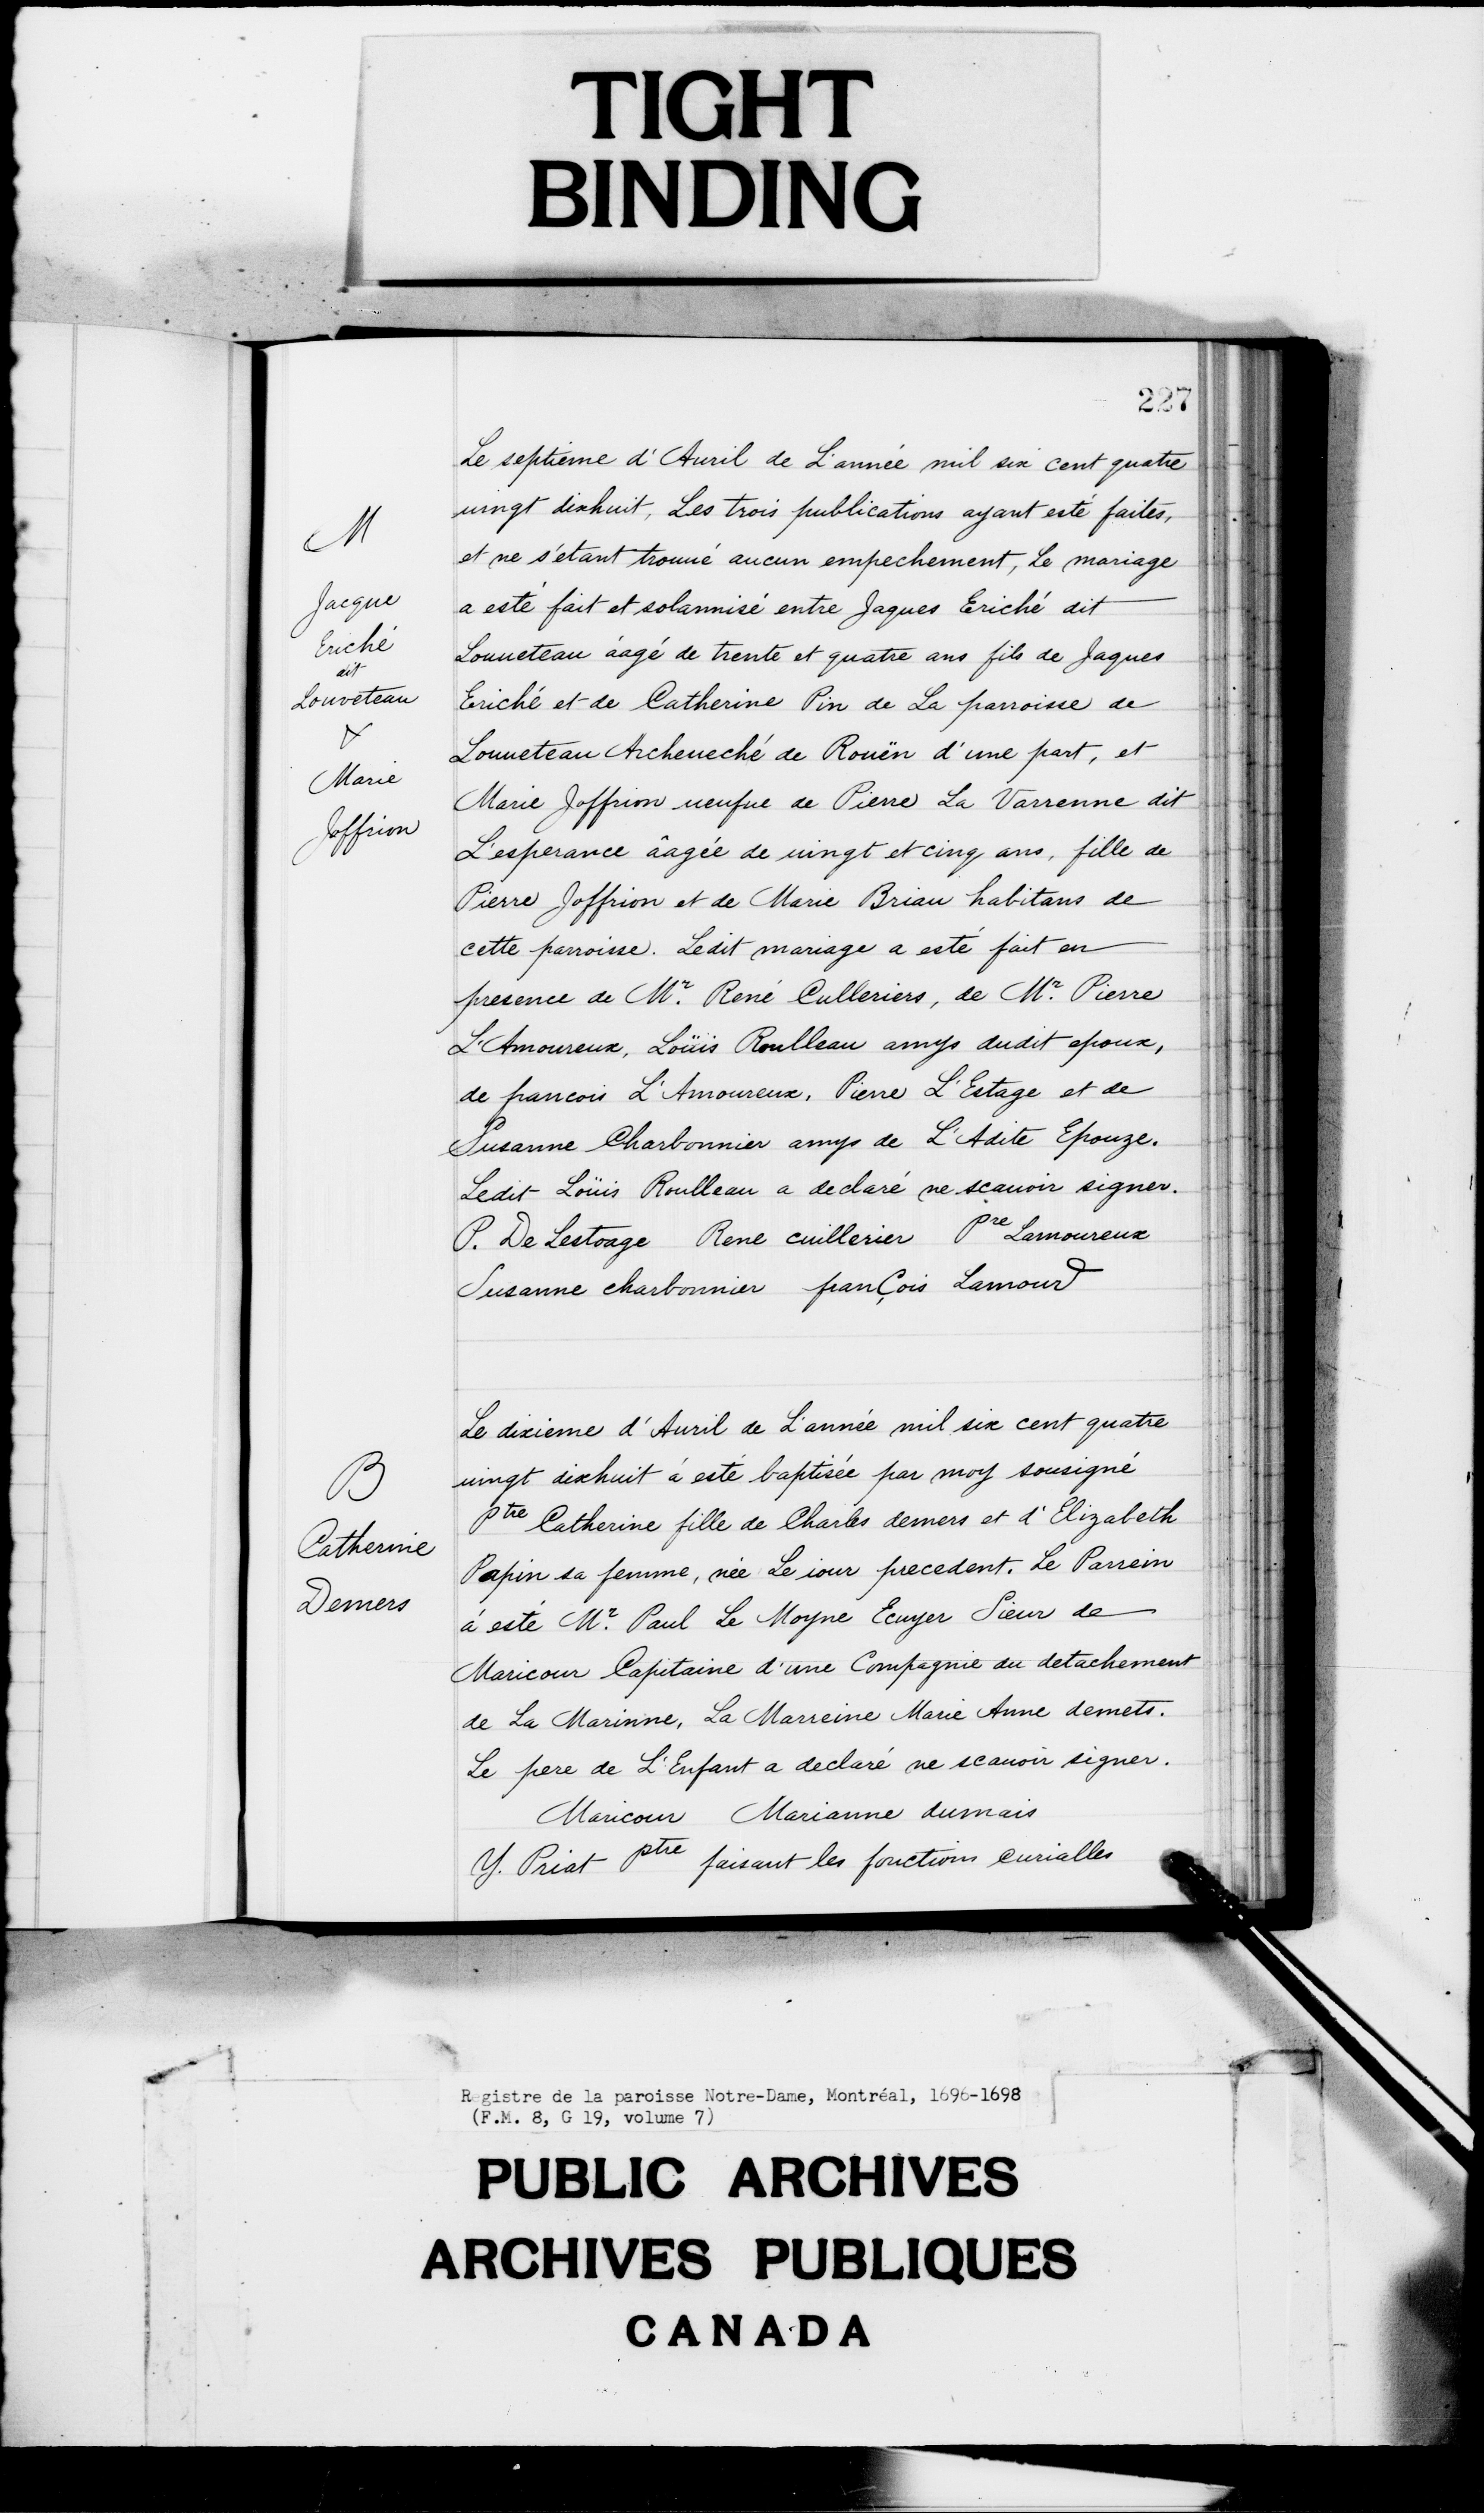 TIGHT
BINDING
227
Le septieme d'Auril de L'année mil six cent quatre
uingt dixhuit, Les trois publications ayant esté faites,
et ne s'etant trouué aucun empechement, Le mariage
a esté fait et solannisé entre Jaques Eriché dit
Louueteau áagé de trente et quatre ans fils de Jaques
Eriché et de Catherine Pin de La parroisse de
Louueteau Archeueché de Rouën d'une part, et
Marie Joffrion ueufue de Pierre La Varrenne dit
L'esperance âagée de uingt et cinq ans, fille de
Pierre Joffrion et de Marie Briau habitans de
cette parroisse. Ledit mariage a esté fait en
presence de Mr. René Culleriers, de Mr. Pierre
L'Amoureux, Loüis Roulleau amys dudit epoux,
de francois L'Amoureux, Pierre L'Estage et de
Susanne Charbonnier amys de L'Adite Epouze.
Ledit Loüis Roulleau a declaré ne scauoir signer.
P. De Lestoage Rene cuillerier Pre Lamoureux
Susanne charbonnier franÇois Lamour
M
Jacque
Eriché
dit
Louveteau
&
Marie
Joffrion
Le dixieme d'Auril de L'année mil six cent quatre
uingt dixhuit á esté baptisée par moy sousigné
ptre Catherine fille de Charles demers et d'Elizabeth
Papin sa femme, née Le iour precedent. Le Parrein
á esté Mr. Paul Le Moyne Ecuyer Sieur de
Maricour Capitaine d'une Compagnie du detachement
de La Marinne, La Marreine Marie Anne demets.
Le pere de L'Enfant a declaré ne scauoir signer.
Maricour Marianne dumais
Y. Priat ptre faisant les fonctions curialles
B
Catherine
Demers
Registre de la paroisse Notre-Dame, Montréal, 1696-1698
(F.M. 8, G 19, volume 7)
PUBLIC ARCHIVES
ARCHIVES PUBLIQUES
CANADA